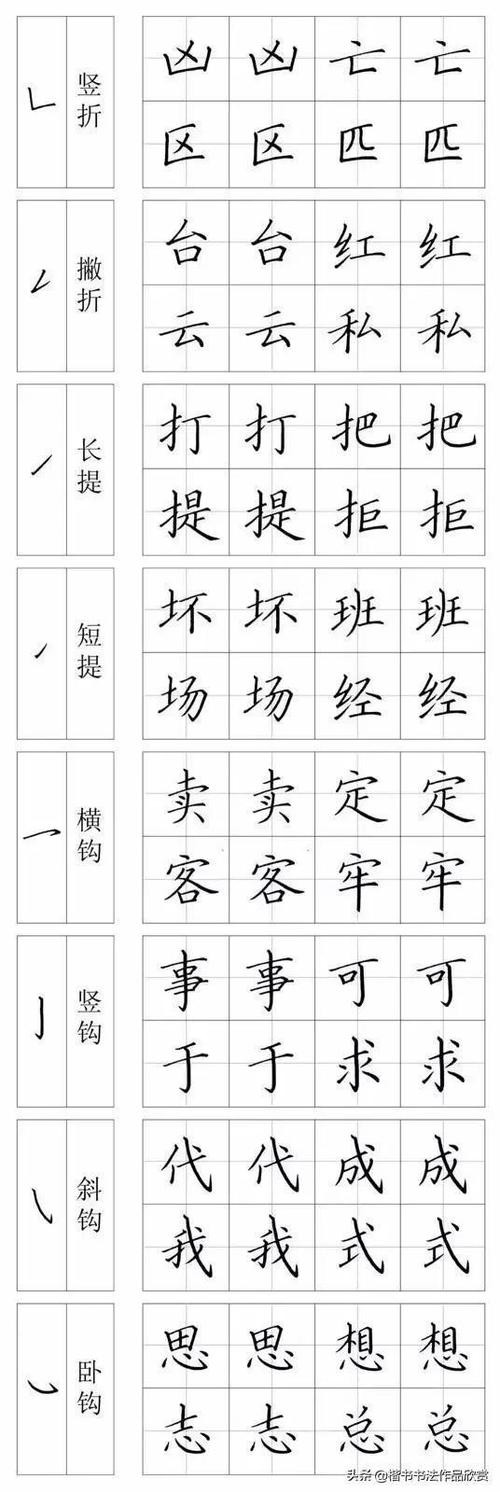 竖折
凶凶亡亡
区区匹匹
撇折
台台红红
云云私私
长提
打打把把
提提拒拒
短提
坏坏班班
场场经经
横钩
卖卖定定
客客牢牢
竖钩
事事可可
于于求求
斜钩
代代成成
我我式式
卧钩
思思想想
志志总总
头条@楷书书法作品欣赏